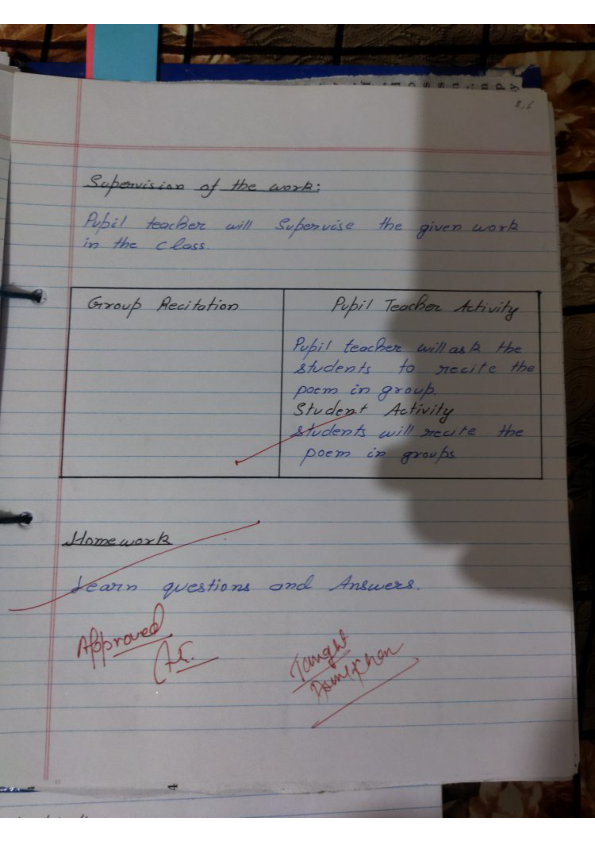 Supervision of the work:
Pupil teacher will Supervise the given work
in the class.
Group Recitation
Pupil Teacher Activity
Pupil teacher will ask the
students to recite the
poem in group.
Student Activity
students will recite the
poem in groups
Homework
Learn questions and Answers.
Approved
Taught